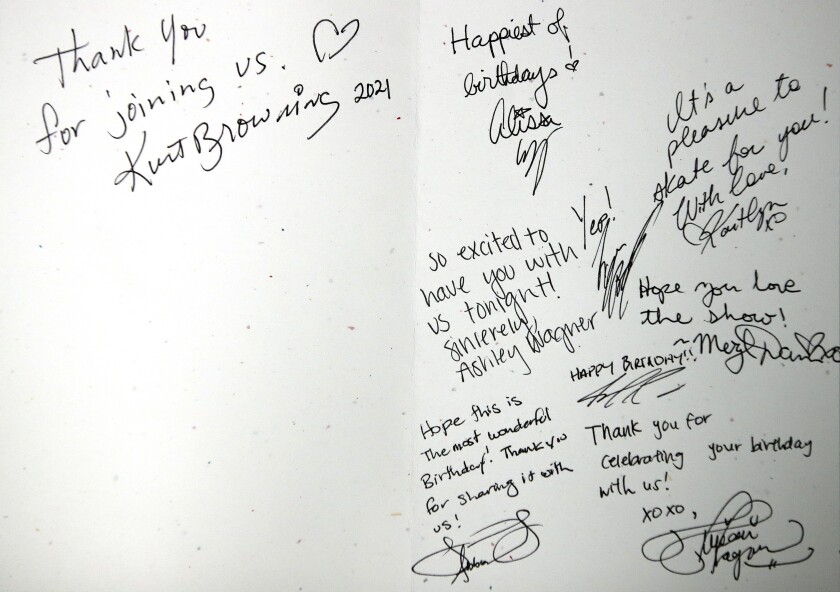 Thank You
for joining us. ♡
Kurt Browning 2021
Happiest of
birthdays!
Alissa
It's a
pleasure to
skate for you!
With love,
Kaitlyn
xo
Yeg!
So excited to
have you with
us tonight!
Sincerely,
Ashley Wagner
Hope you love
the show!
~Meryl Davis
HAPPY BIRTHDAY!!
Hope this is
The most wonderful
Birthday! Thank you
for sharing it with
us!
Thank you for
celebrating your birthday
with us!
xoxo,